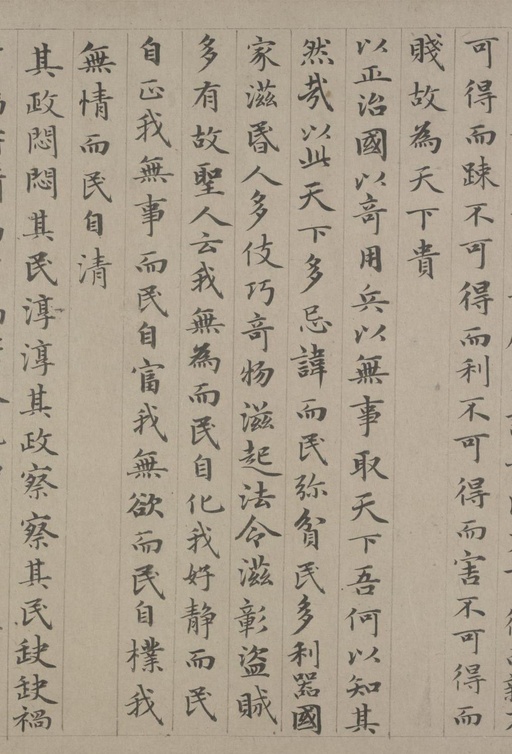 可得而踈不可得而利不可得而害不可得而
賤故為天下貴
以正治國以奇用兵以無事取天下吾何以知其
然㢤以此天下多忌諱而民弥貧民多利器國
家滋昬人多伎巧奇物滋起法令滋彰盗賊
多有故聖人云我無為而民自化我好静而民
自正我無事而民自富我無欲而民自樸我
無情而民自清
其政悶悶其民淳淳其政察察其民𡙇𡙇禍